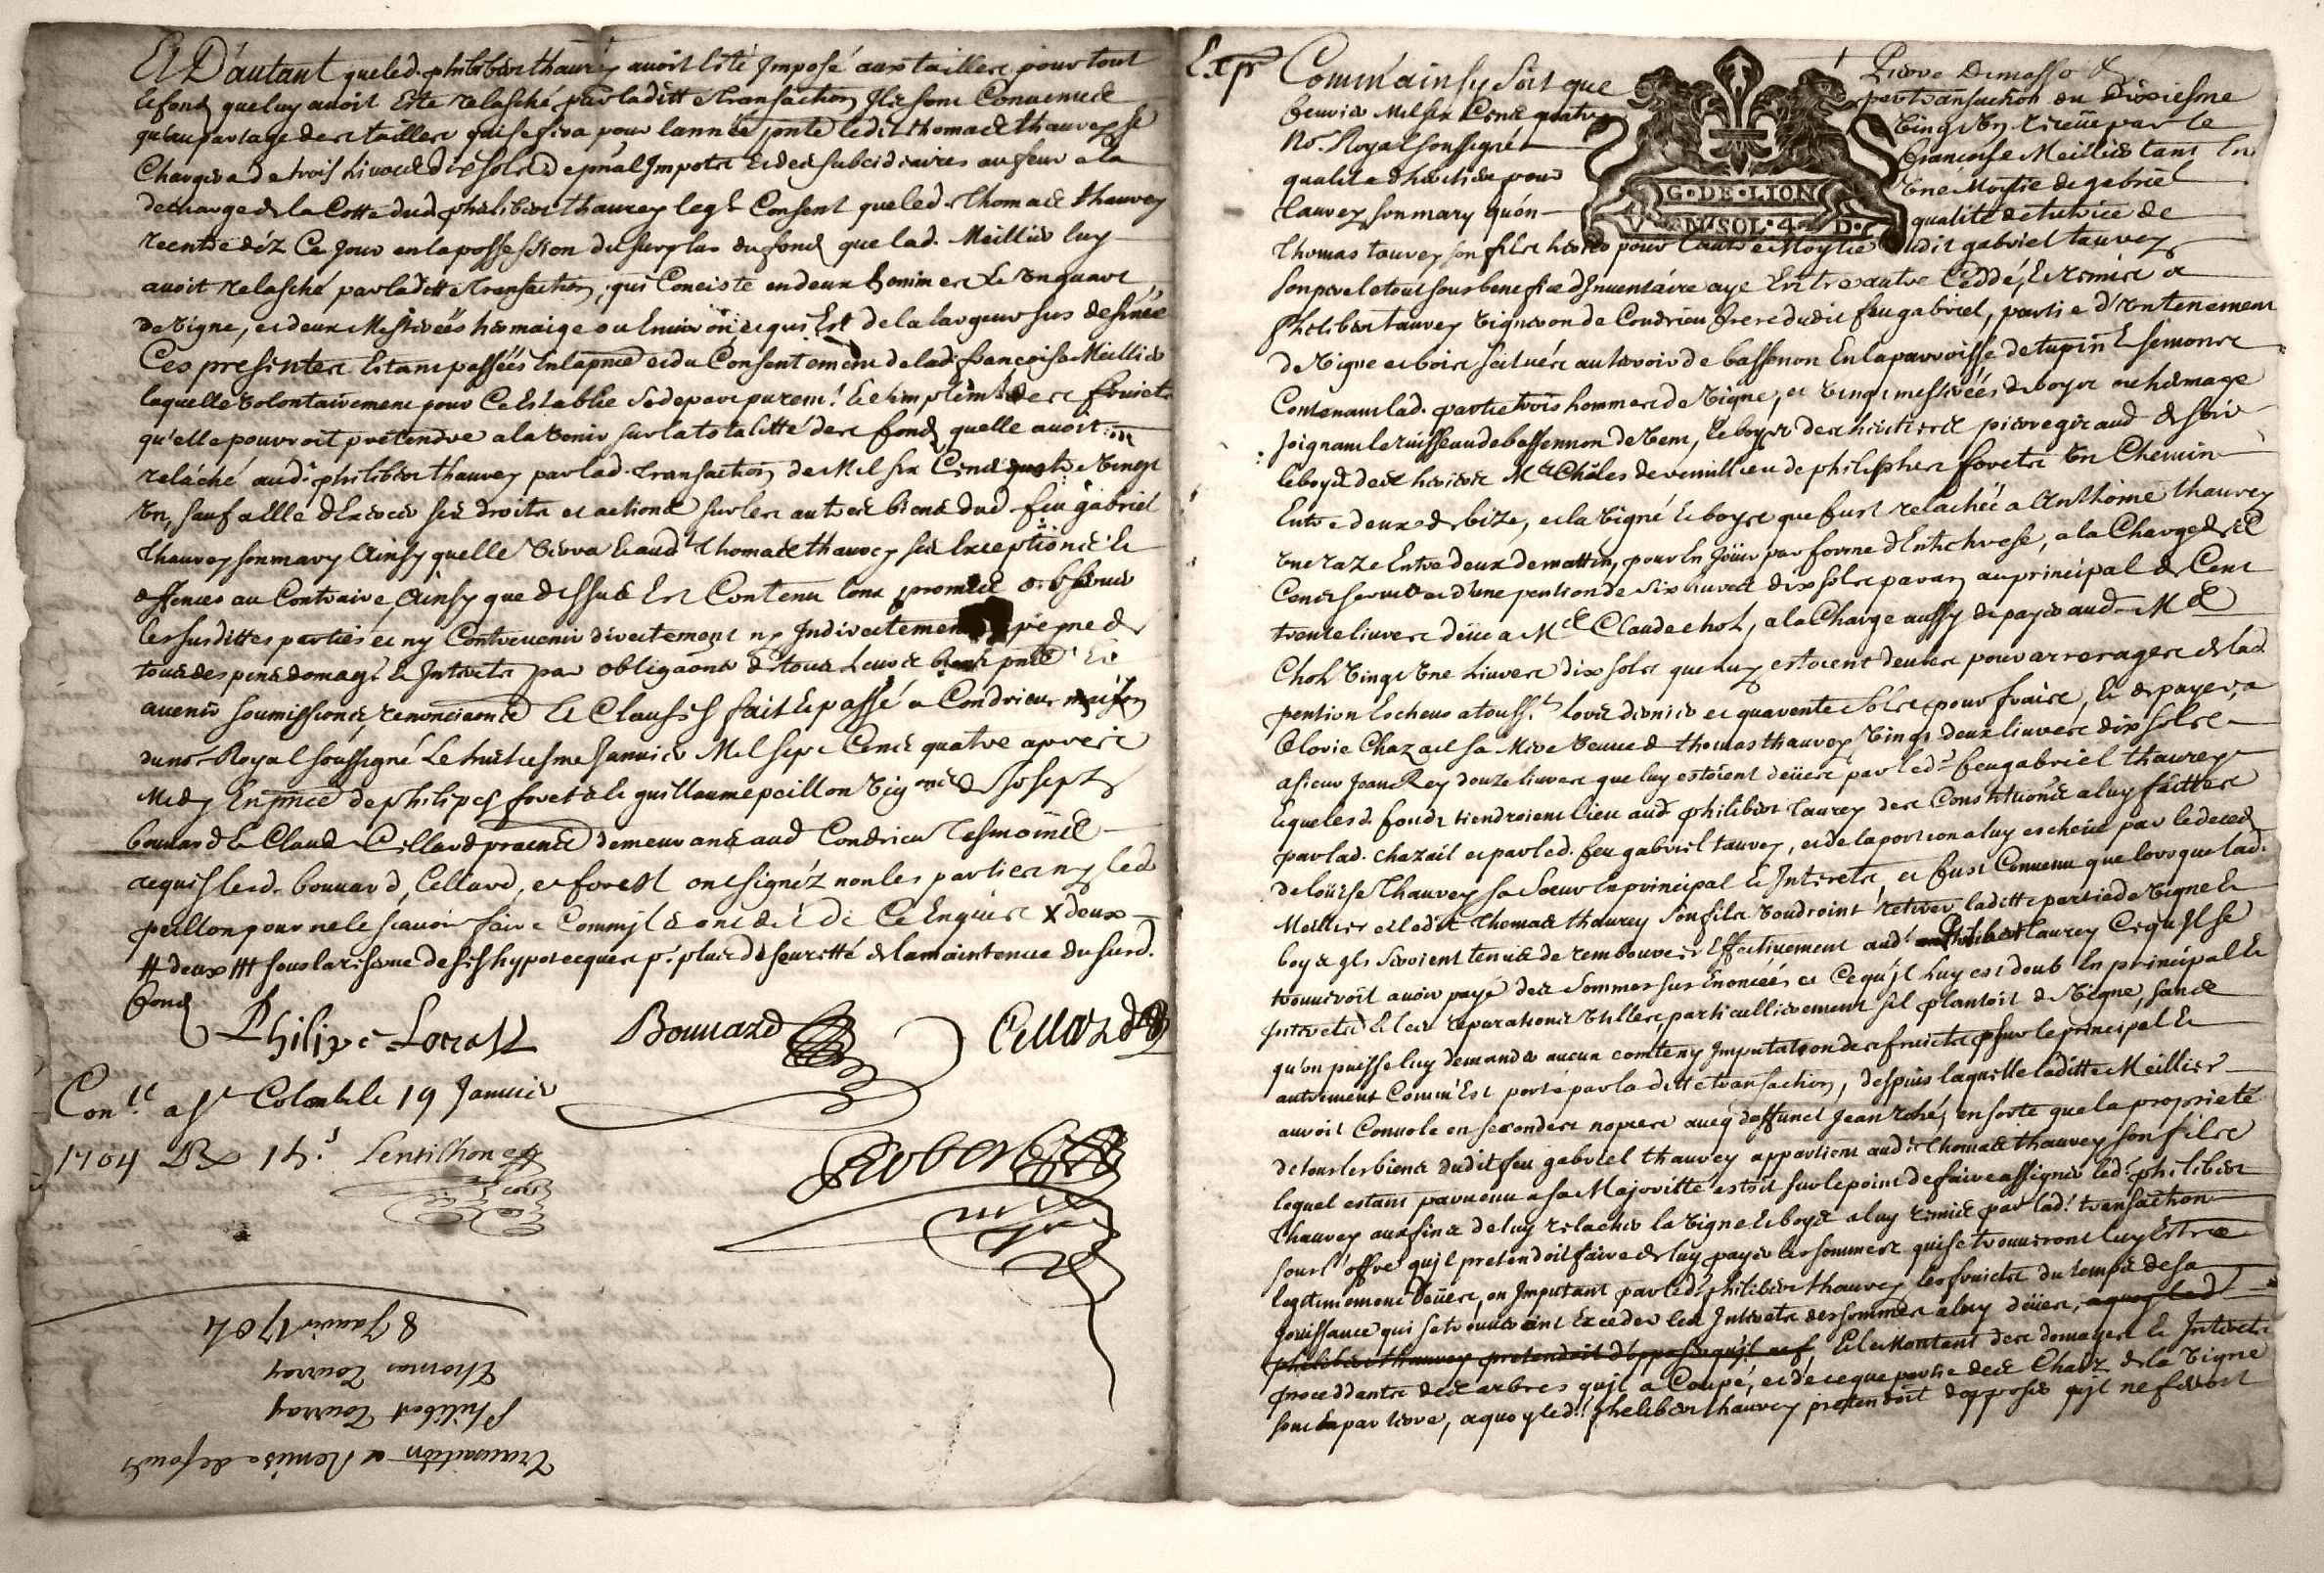 Et D'autant que led. philibert thauvey avoit esté Imposé aux tailles pour tout
le fond que luy avoit esté relasché par laditte transaction Ils sont Convenus
qu'au partage des tailles qui se fera pour l'année led. thomas thauvey se
Chargera de trois Livres dix sols de Imposts et des subcidiaires
decharge de la Cotte dud. philibert thauvey Consent que led. Thomas thauvey
rentre déz Ce Jour en la possession du surplus du fond que lad. Meillier luy
avoit relasché par laditte transaction, qui Conciste en deux hommes Et Un quart
de Vigne, et deux Mestivées hermaige ou Environ
Ces presentes Estant passées En la pnce et du Consentement de lad. françoise Meillier
laquelle volontairement pour Ce Establie se depart purem.t Et simplem.t des fruicts
qu'elle pourroit pretendre a la venir sur la totalitté des fond quelle avoit
relâché aud. philibert thauvey par lad. transaction de Mil six Cens quatre Vingt
Un, sauf a elle d'Exercer ses droits et actions sur les autres biens dud feu gabriel
thauvey son mary Ainsy quelle verra Et aud.t Thomas thauvey ses Exceptions Et
deffences au Contraire, Ainsy que dessus Est Contenu l'ont promis observer
les susdittes parties et ny Contrevenir directement ny Indirectement a peyne de
tous despens domages Et Interets par obligaõns de tous Leurs biens pnts Et
avenir soumissions, renonciaõns Et Clauses fait Et passé a Condrieu maison
du no.re Royal soussigné Le huitiesme Janvier Mil sept Cens quatre apres
Midy En pnce de philipes forest et guillaume peillon Vig.ons Joseph
bouvard Et Claude Cellard demeurants aud Condrieu Tesmoins
requis lesd. bouvard, Cellard, et forest ont signéz non les parties ny led
peillon pour ne le sçavoir faire Comm'ils ont dit de Ce Enquis X deux
# deux ### sous la reserve de ses hypotecques p.r plus de seuretté de la maintenue du susd.
fond
Philipe Forest Bouvard Cellard
Con.lé a S.t Colombe le 19 Janvier
1704 Rx 15.s Lentilhon
Robert
no.re Royal
8 Janvier 1704
Thomas Tauvey
Philibert Tauvey
Transaction et Remise de fonds
Exp.é Comm'ainsy soit que par transaction du dixiesme
febvrier Mil six Cens quatre Vingt Un receue par le
No.re Royal soussigné françoise Meillier tant En
qualité d'heritiere pour Une Moytié de gabriel
tauvey son mary qu'en qualité de tutrice de
Thomas tauvey son fils heritier pour l'autre Moytié dudit gabriel tauvey
son pere le tout sous benefice d'Inventaire aye Entre autre Ceddé, Et remis a
Philibert tauvey Vigneron de Condrieu frere dudit feu gabriel, partie d'Un tenement
de Vigne et bois scituée au terroir de bassenon En la parroisse de tupin Et semons
Contenant lad. partie trois hommes de Vigne, et Vingt mestivées de boys ou hermage
Joignant le ruisseau de bassennon de Vent, Le boys des heritiers pierre giraud de soir
le boys des heritiers M.e Charles de vermillieu de philiphes forets Un Chemin
Entre deux de bize, et la Vigne Et boys que fust relachée a Anthoine thauvey
Une raze Entre deux de mattin, pour En Jouir par forme d'Antichrese, a la Charge
Cens servis et d'une pention de six livres dix sols par an au principal de Cent
trente livres deue a M.e Claude Chol, a la Charge aussy de payer aud. M.e
Chol Vingt Une Livres dix sols que luy estoient deues pour arrerages de lad.
pention Escheus a touss.ts lors dernier et quarente sols pour fraics, Et de payer a
Clorie Chazail sa Mere Veuve de thomas thauvey Vingt deux livres dix sols
a sieur Jean Rey douze livres que luy estoient deues par led.t feu gabriel thauvey
lequel fond tiendroient lieu aud. philibert tauvey des Constitutions a luy faittes
par lad. Chazail et par led. feu gabriel tauvey, et de la portion a luy escheue par le deceds
de Louise Thauvey sa soeur En principal Et Interets, et fust Convenu que lors que lad.
Meillier et ledit Thomas thauvey son fils voudroint retirer laditte partie de Vigne Et
boys ils seroient tenus de rembourser Effectivement aud. Philibert tauvey Ce qu'Il se
trouveroit avoir payé des sommes sus Enoncées et Ce qu'Il Luy est doub En principal Et
Interets Et les reparations Utilles, particullierement s'il plantoit de Vigne, sans
qu'on puisse luy demander aucun comte ny Imputation des fruicts sur le principal Et
autrement Comm'Est porté par la ditte transaction, despuis laquelle laditte Meillier
auroit Convole en secondes nopces avec deffunct Jean en sorte que la proprieté
de tous les biens dudit feu gabriel thauvey appartient aud. Thomas thauvey son fils
lequel estant parvenu a sa Majoritté estoit sur le point de faire assigner led. philibert
Thauvey aux fins de luy relacher la Vigne Et boys a luy remis par lad. transaction
sous l'offre qu'il pretendoit faire de luy payer les sommes qui se trouveront luy Estre
legitimement deues, en Imputant par led. philibert thauvey les fruicts du temps de sa
Jouissance qui se trouveroint Exceder les Interets des sommes a luy deues, a quoy led
philibert thauvey pretendoit d'opposer qu'il ne f Et le Montant des domages Et Interets
proceddants des arbres qu'il a Coupé, et de ce que partie des Chaiz de la Vigne
sont par terre, a quoy led.t Philibert thauvey pretendoit d'opposer qu'il ne feroit
G·DE·LION
V N SOL·4·D·